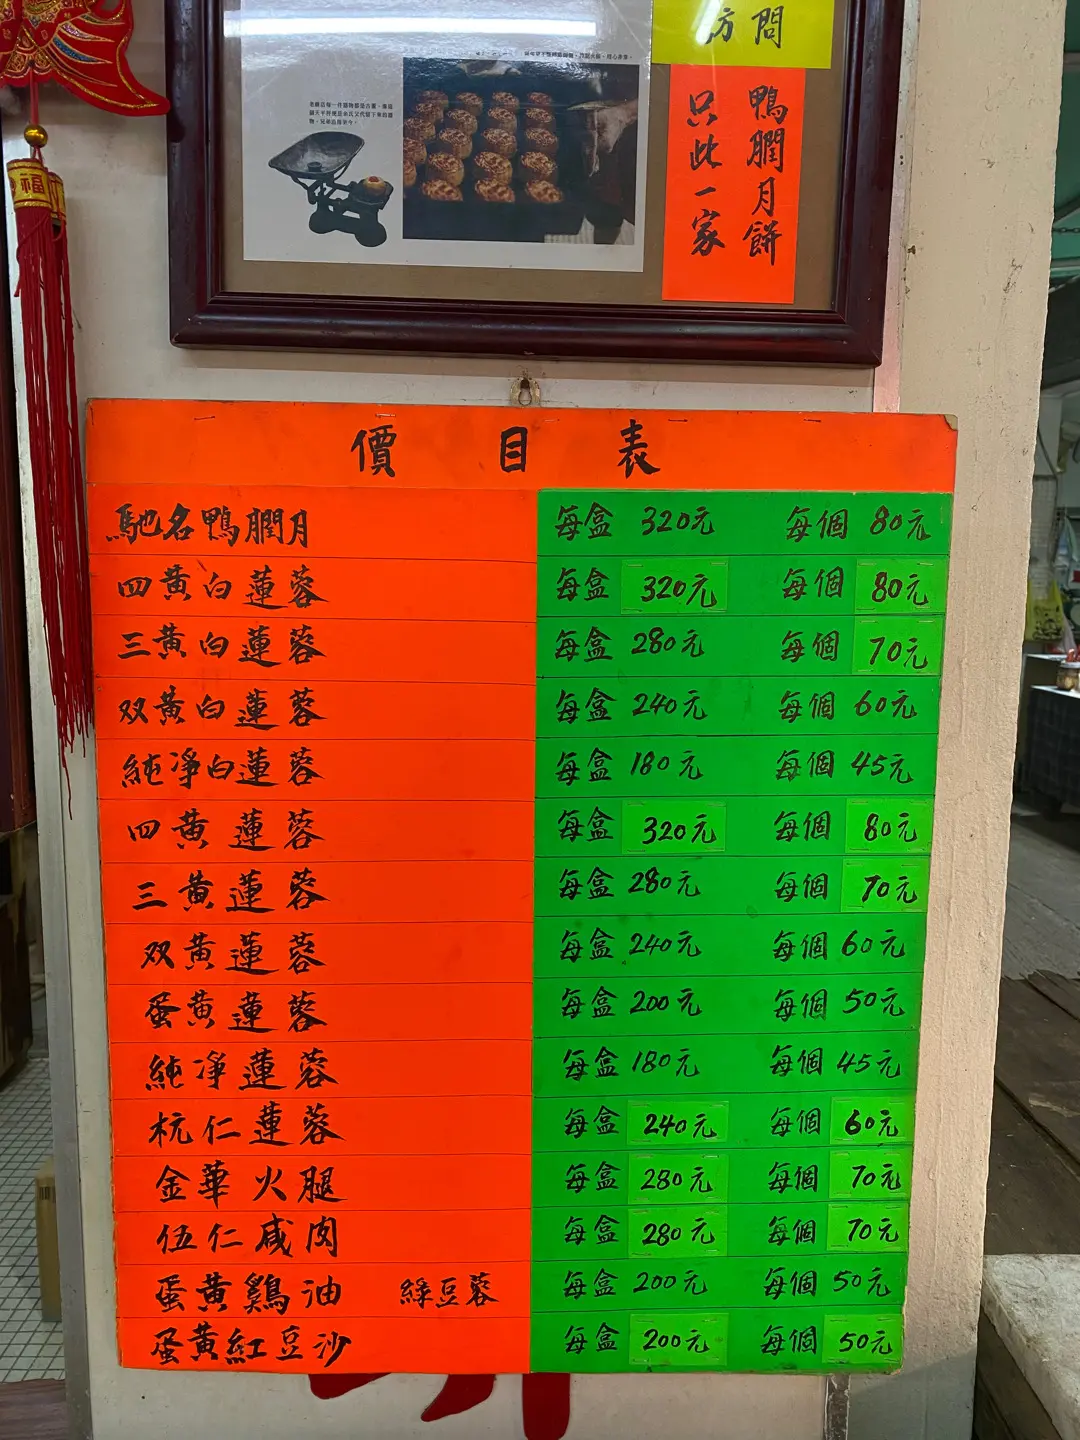 訪問
鴨膶月餅
只此一家
福
價目表
馳名鴨膶月 每盒 320元 每個 80元
四黃白蓮蓉 每盒 320元 每個 80元
三黃白蓮蓉 每盒 280元 每個 70元
双黃白蓮蓉 每盒 240元 每個 60元
純凈白蓮蓉 每盒 180元 每個 45元
四黃蓮蓉 每盒 320元 每個 80元
三黃蓮蓉 每盒 280元 每個 70元
双黃蓮蓉 每盒 240元 每個 60元
蛋黃蓮蓉 每盒 200元 每個 50元
純凈蓮蓉 每盒 180元 每個 45元
杬仁蓮蓉 每盒 240元 每個 60元
金華火腿 每盒 280元 每個 70元
伍仁咸肉 每盒 280元 每個 70元
蛋黃雞油 綠豆蓉 每盒 200元 每個 50元
蛋黃紅豆沙 每盒 200元 每個 50元